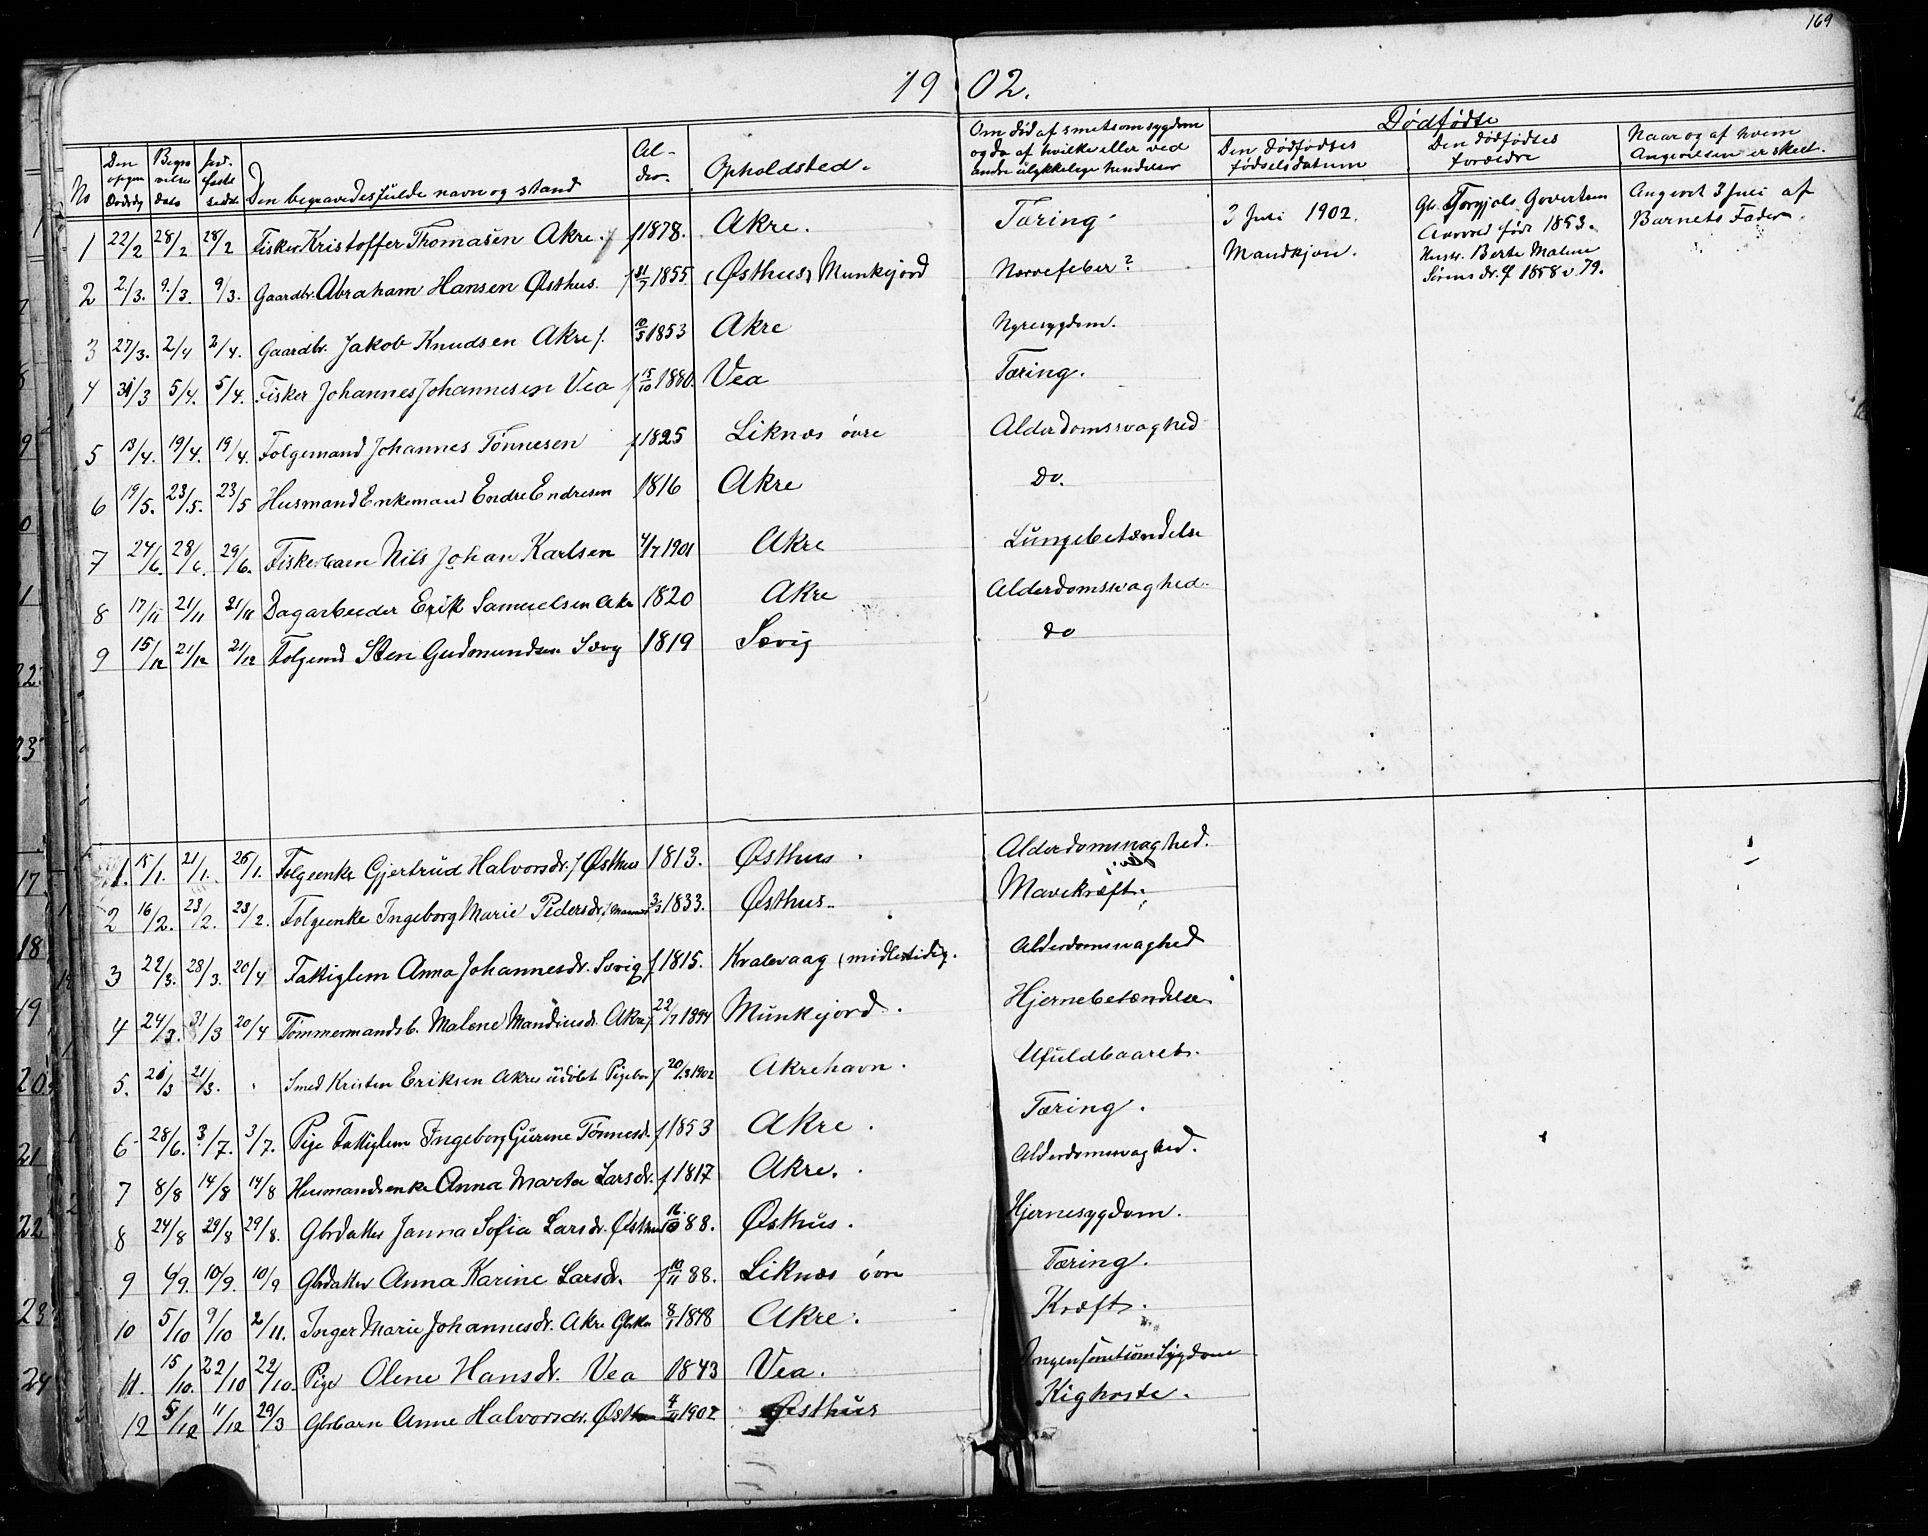 169
1902.
No | Den opgivn Dødsdg | Begravelses Dato | Jordfæstelsesdat | Den begravedes fulde navn og stand | Alder. | Opholdsted. | Om død af smetsom sygdom og da af hvilke eller ved andre ulykkelige hendelser | Dødfødte
Den dødfødtes fødselsdatum | Den dødfødtes forældre | Naar og af hvem Angivelsen er skeet.
1 | 22/2 | 28/2 | 28/2 | Fisker Kristoffer Thomasen Akre. | f 1878. | Akre. | Tæring | 3 Juli 1902. Mandkjøn. | Gb. Govertsen født 1853. Hustr. Berte Malene Sörensdr. f 1858 v 79. | Angivet 3 Juli af Barnets Fader.
2 | 2/3. | 9/3. | 9/3. | Gaardbr. Abraham Hansen Østhus. | f 31/7 1855 | (Østhus) Munkejord | Nervefeber?
3 | 27/3. | 2/4 | 2/4. | Gaardbr. Jakob Knudsen Akre f. | 10/3 1853 | Akre | Nyresygdom.
4 | 31/3 | 5/4. | 5/4. | Fisker Johannes Johannesen Vea | f 15/10 1880. | Vea | Tæring.
5 | 13/4. | 19/4. | 19/4. | Folgemand Johannes Tönnesen | f 1825 | Liknæs övre | Alderdomssvaghed
6 | 19/5. | 23/5. | 23/5 | Husmand Enkemand Endre Endresen | 1816 | Akre | Do.
7 | 24/6. | 28/6. | 29/6. | Fiskerbarn Nils Johan Karlsen | 4/7 1901 | Akre | Lungebetændelse
8 | 17/11 | 21/11 | 21/11 | Dagarbeider Erik Samuelsen Akre | 1820 | Akre | Alderdomssvaghed.
9 | 15/12 | 21/12 | 21/12 | Folgemd Sten Gudmundsen Sævg | 1819 | Sævig | do
1. | 15/1. | 21/1. | 26/1. | Folgeenke Gjertrud Halvorsdr. f Østhus | 1813. | Østhus. | Alderdomsvaghed.
2 | 16/2. | 23/2. | 23/2. | Folgeenke Ingeborg Marie Pedersdr. | 3/3 1833. | Østhus. | Mavekræft.
3 | 22/3. | 28/3. | 20/4 | Fattiglem Anna Johannesdr. Sævig | f 1815. | Kvalevaag (midlertidig. | Alderdomsvaghed
4 | 24/3. | 31/3 | 20/4 | Tömmermandsb. Malene Mandiusdr. Akre f. | 22/7 1894 | Munkejord. | Hjernebetændelse
5. | 20/3 | 21/3. | Smed Kristen Eriksen Akres udöbt Pigebn | f 20/3 1902 | Akrehavn. | Ufuldbaaret.
6 | 28/6. | 3/7. | 3/7. | Pige Fattiglem Ingeborg Gurene Tönnesd. | f 1853 | Akre. | Tæring.
7 | 8/8 | 14/8 | 14/8 | Husmandsenke Anna Marta Larsdr. | f 1817 | Akre. | Alderdomsvaghed.
8 | 24/8 | 29/8 | 29/8. | Gbrdatter Janna Sofia Larsdr. Østhus | 16/10 88. | Østhus. | Hjernesygdom.
9 | 6/9. | 10/9. | 10/9 | Gbrdatter Anna Karine Larsdr. | f 10/11 88. | Liknæs övre | Tæring.
10 | 5/10 | 9/10 | 2/11. | Inger Marie Johannesdr. Akre Gbrkn | 8/1 1848 | Akre. | Kræft.
11. | 15/10. | 22/10 | 22/10. | Pige Olene Hansdr. Vea | 1843 | Vea. | Ingen smitsom Sygdom
12 | 5/12 | 11/12 | 29/3 | Gbrbarn Anne Halvorsdr. Østhus | 4/11 1902 | Østhus | Kighoste.